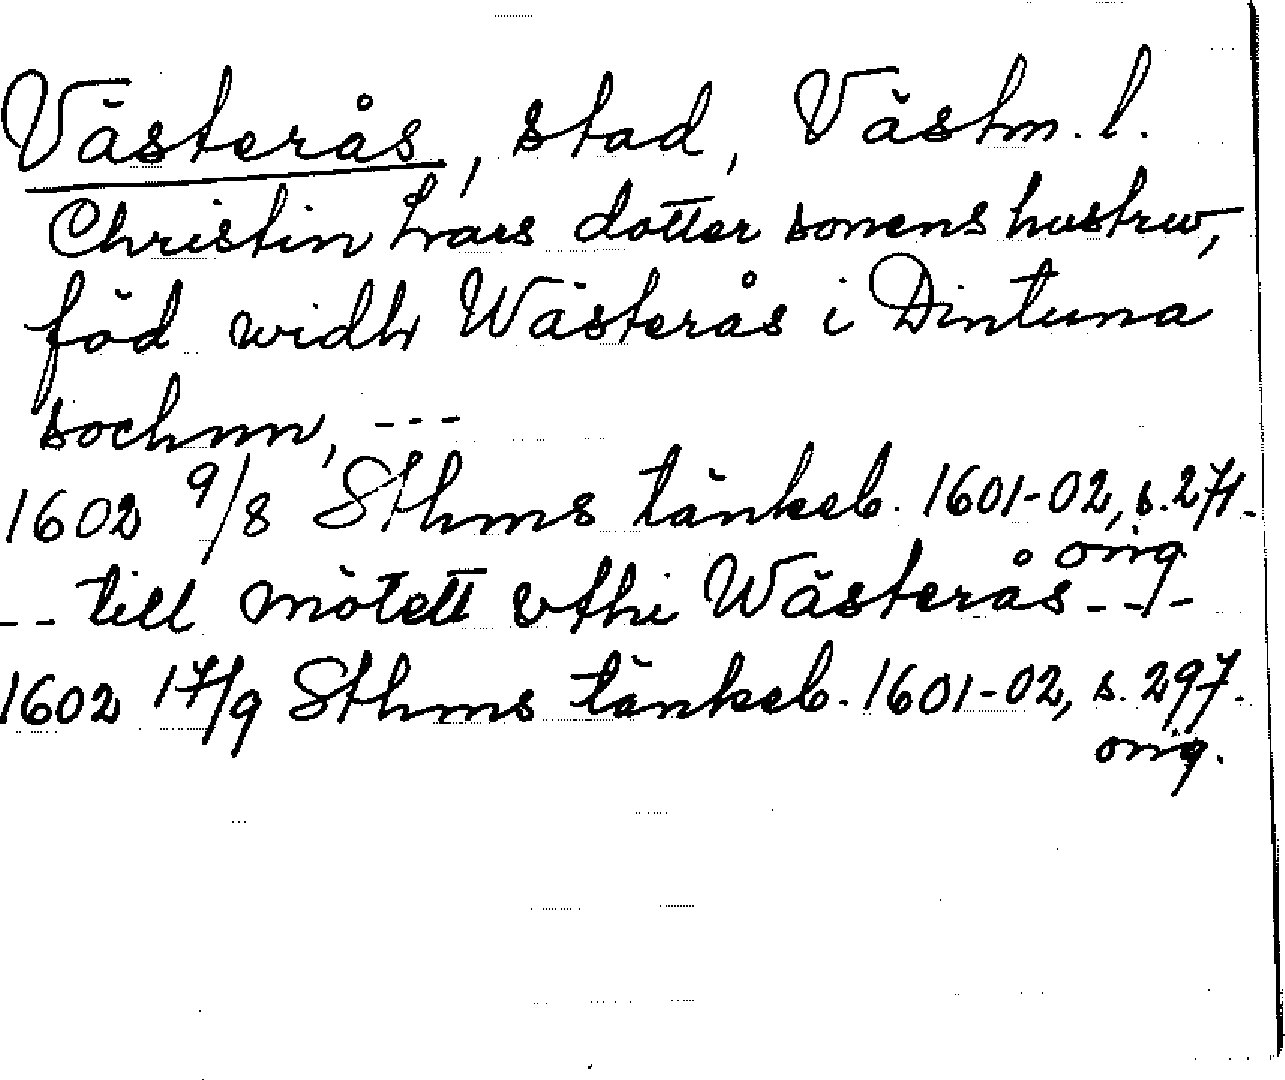 Västerås, stad, Västm. l.
Christin Lars dotter sonens hustrw,
föd widh Wästerås i Dintuna
sochnn, ---
1602 9/8 Sthms tänkeb. 1601-02, s. 271.
orig
-- till mötett vthi Wästerås ---
1602 17/9 Sthms tänkeb. 1601-02, s. 297.
orig.